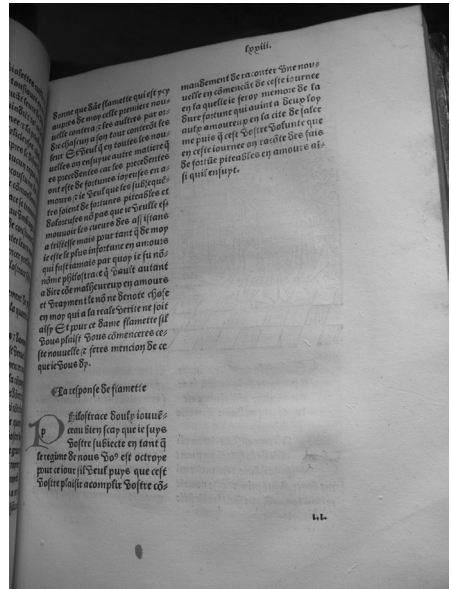 lxxiii.
donne que dāe flamette qui est ycy
aupres de moy celle premiere nou-
uelle contera: ⁊ les aultres par or-
dre chascun a son tour conterōt les
leur Et veul q̄ en toutes les nou-
uelles on ensuyue autre matiere q̄
es precedentes car les precedentes
ont este de fortunes ioyeuses en a-
mours ⁊ ie veul que les subsequē-
tes soient de fortunes piteables et
doloreuses nō pas que ie veulle es-
mouuoir les cueurs des assistans
a tristesse mais pour tant q̄ de moy
ie este le plus infortune en amours
qui fust iamais par quoy ie fu nō-
nōme philostrate q̄ vault autant
a dire cōe malheureux en amours
et vrayment le nō ne denote chose
en moy qui a la reale verite ne soit
aisy Et pour ce dame flamette sil
vous plaist vous cōmenceres ce-
ste nouuelle ⁊ feres mencion de ce
que ie vous dy.
¶La response de fiamette
P Hilostrace doulx iouuē-
ceau bien scay que ie suys
vostre subiecte en tant q̄
le regime de nous voꝰ est octroye
pour ce iour sil veul puys que cest
vostre plaisir acomplir vostre cō-
mandement de raconter vne nou-
uelle en cōmencāt de ceste iournee
en la quelle ie feroy memore de la
dure fortune qui auint a deux loy
aulx amoureux en la cite de salet
me puis q̄ cest vostre volunte que
en ceste iournee on racōte des fais
de fortūe piteables en amours as-
si quil ensuyt.
LL.